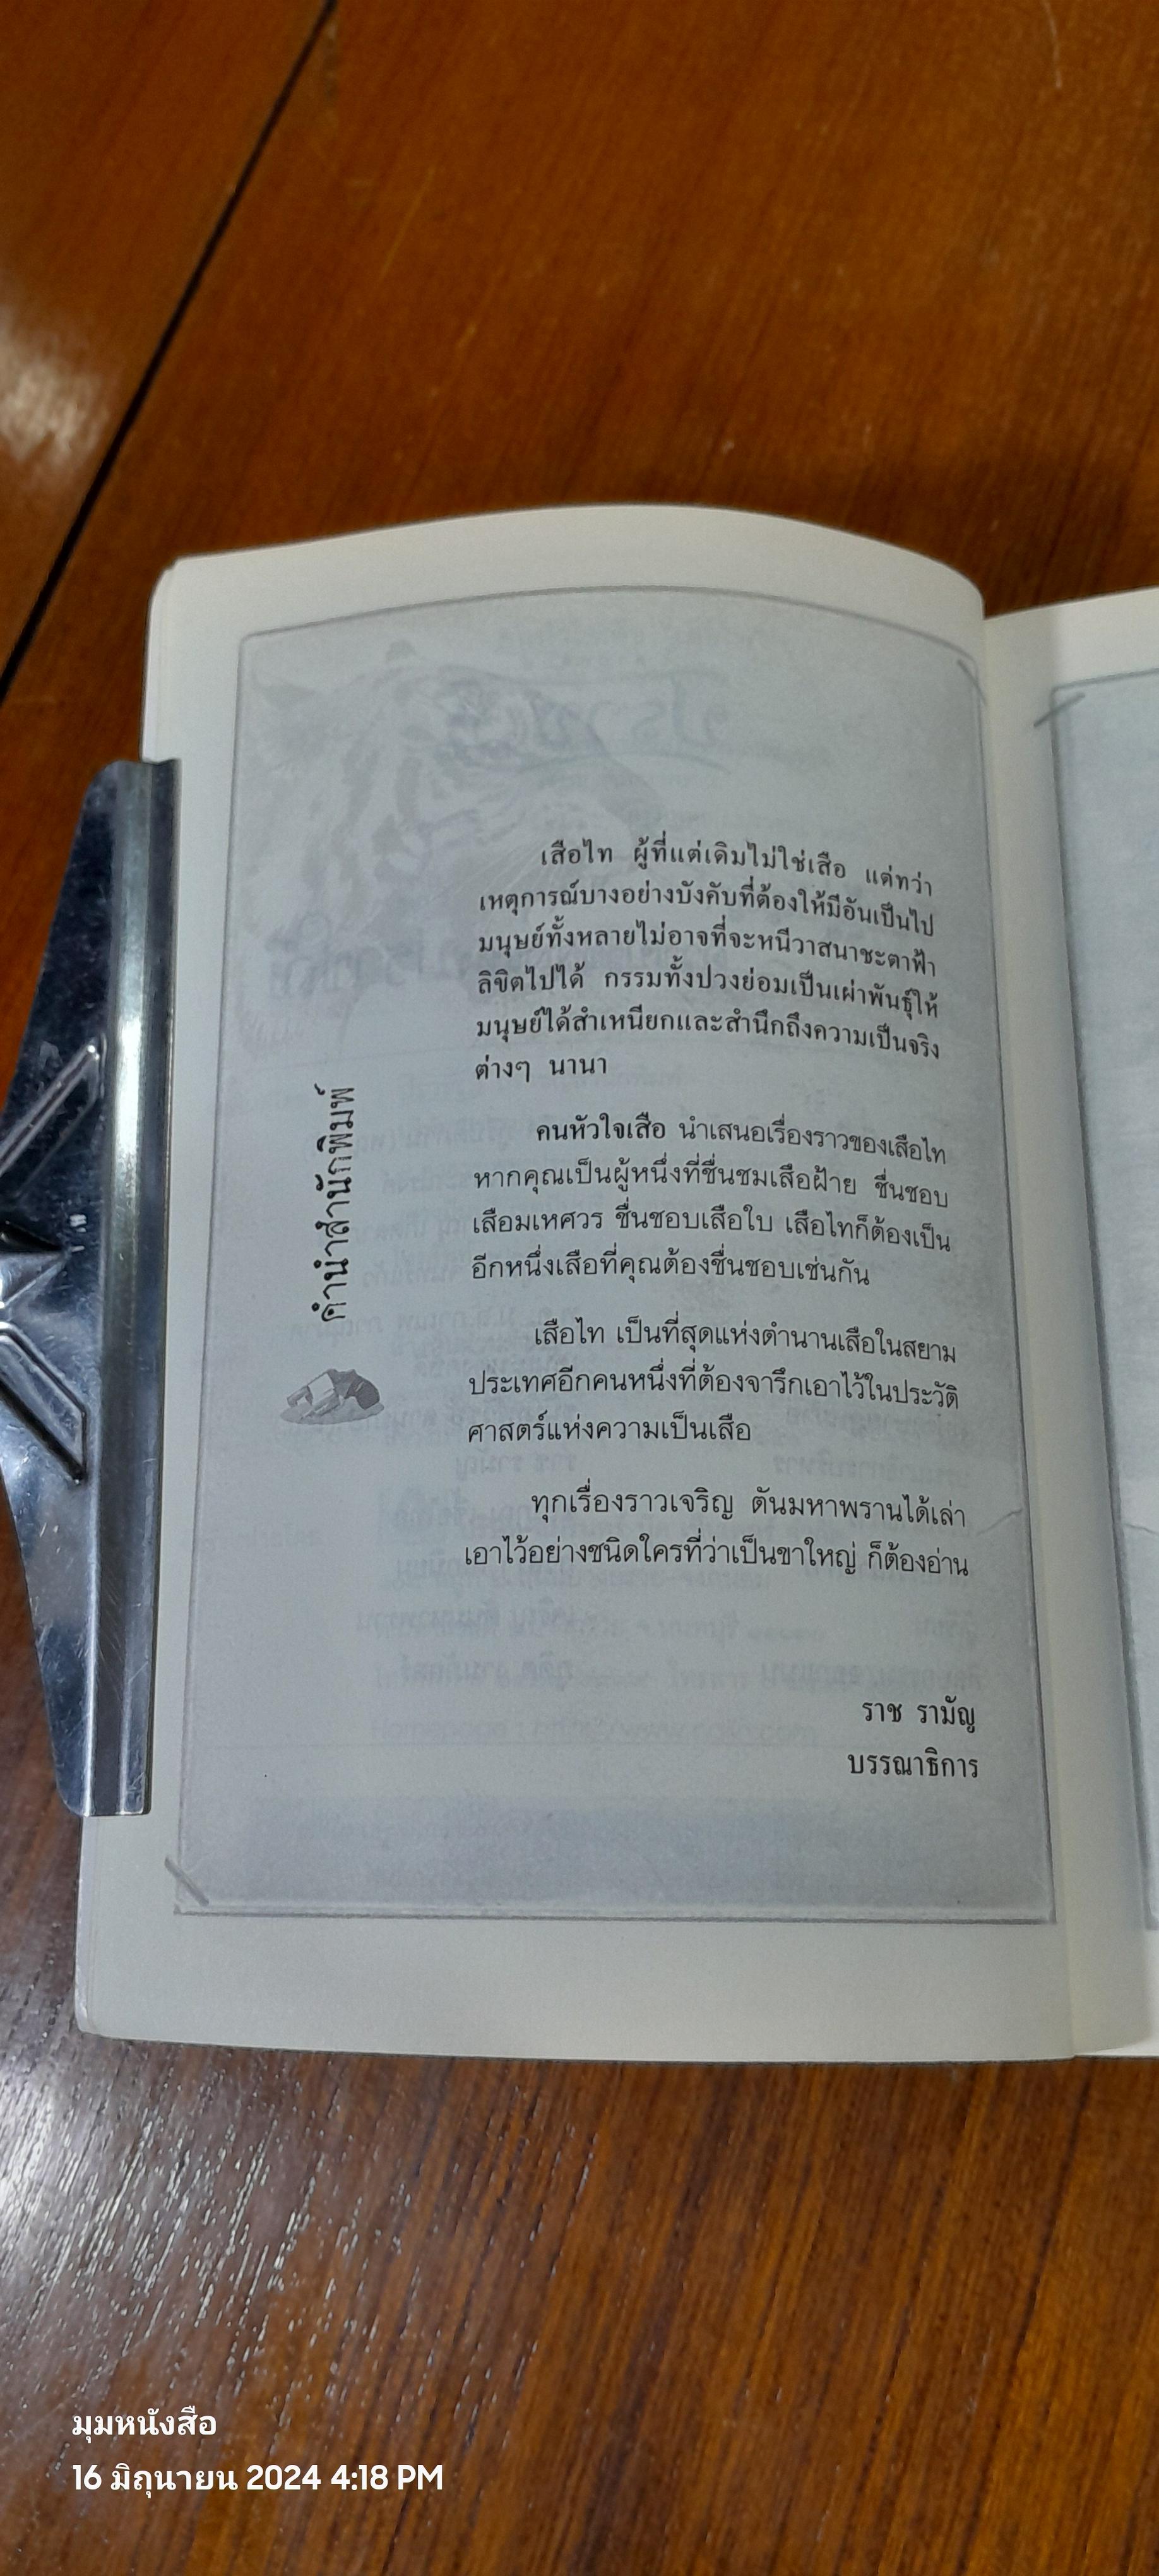 คำนำสำนักพิมพ์
เสือไท ผู้ที่แต่เดิมไม่ใช่เสือ แต่ทว่า
เหตุการณ์บางอย่างบังคับที่ต้องให้มีอันเป็นไป
มนุษย์ทั้งหลายไม่อาจที่จะหนีวาสนาชะตาฟ้า
ลิขิตไปได้ กรรมทั้งปวงย่อมเป็นเผ่าพันธุ์ให้
มนุษย์ได้สำเหนียกและสำนึกถึงความเป็นจริง
ต่างๆ นานา
คนหัวใจเสือ นำเสนอเรื่องราวของเสือไท
หากคุณเป็นผู้หนึ่งที่ชื่นชมเสือฝ้าย ชื่นชอบ
เสือมเหศวร ชื่นชอบเสือใบ เสือไทก็ต้องเป็น
อีกหนึ่งเสือที่คุณต้องชื่นชอบเช่นกัน
เสือไท เป็นที่สุดแห่งตำนานเสือในสยาม
ประเทศอีกคนหนึ่งที่ต้องจารึกเอาไว้ในประวัติ
ศาสตร์แห่งความเป็นเสือ
ทุกเรื่องราวเจริญ ตันมหาพรานได้เล่า
เอาไว้อย่างชนิดใครที่ว่าเป็นขาใหญ่ ก็ต้องอ่าน
ราช รามัญ
บรรณาธิการ
มุมหนังสือ
16 มิถุนายน 2024 4:18 PM